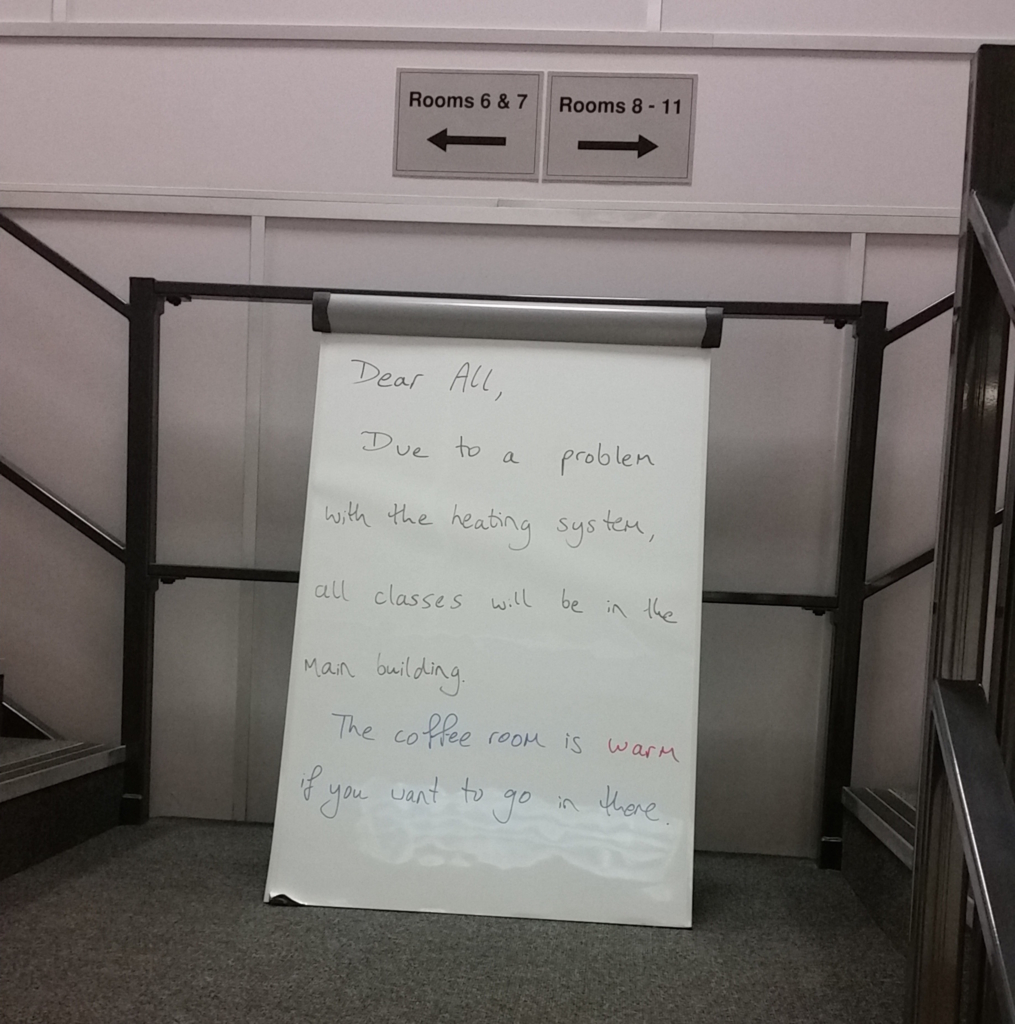 Rooms 6 & 7
Rooms 8 - 11
Dear All,
Due to a problem
with the heating system,
all classes will be in the
main building.
The coffee room is warm
if you want to go in there.